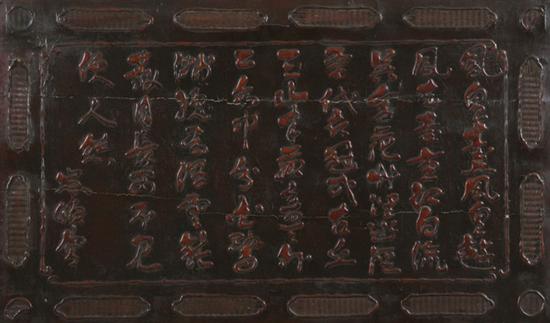 鳳凰臺上鳳凰遊
鳳去臺空江自流
吳宮花草埋幽徑
晉代衣冠成古丘
三山半落青天外
二水中分白鷺
洲總為浮雲能
蔽日長安不見
使人愁